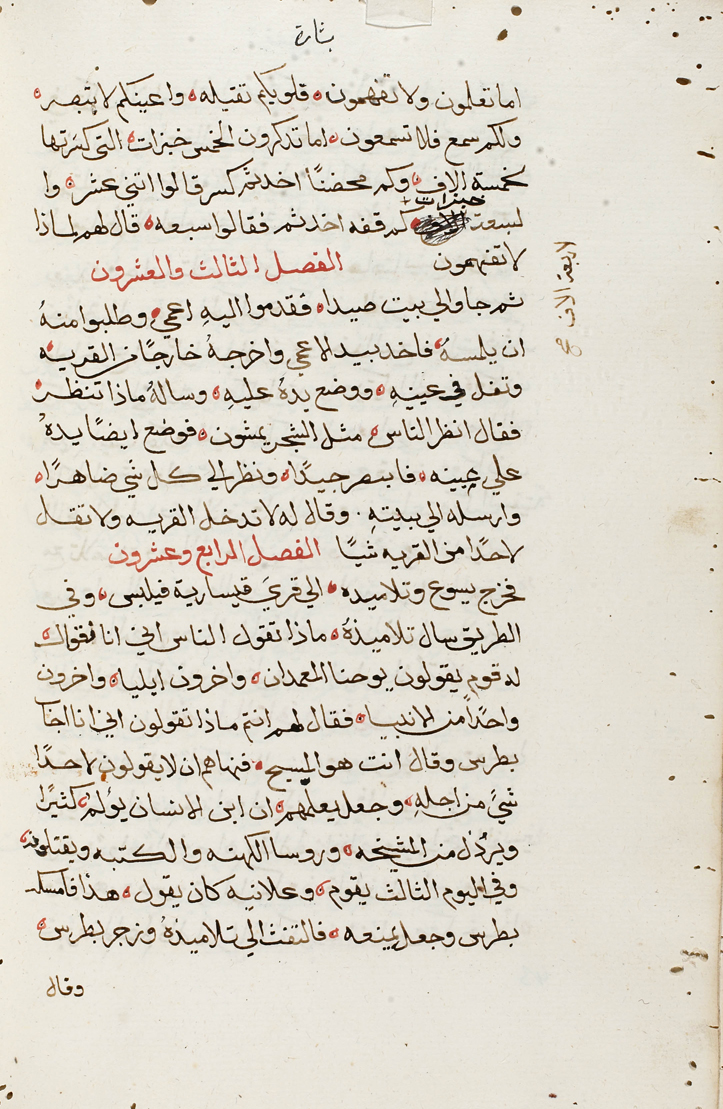 بشارة
اما تعلمون ولا تفهمون قلوبكم تقيله واعينكم لا تبصر
ولكم سمع فلا تسمعون اما تذكرون الخمس خبزات التي كسرتها
لخمسة الاف وكم محضنًا اخدتم كسر قالوا اتني عشر وا
خبزات
لسبعة كم قفه اخدتم فقالوا سبعه قال لهم لماذا
لا تفهمون الفصل الثالث والعشرون
لاربعة الاف صح
ثم جا والي بيت صيدا فقدموا اليهِ اعمي وطلبوا منهُ
ان يلمسهُ فاخد بيد الاعمي واخرجهُ خارجًا من القريه
وتفل في عينيهِ ووضع يدهُ عليهِ وسالهُ ماذا تنظر
فقال انظر الناس مثل الشجر يمشون فوضع ايضًا يدهُ
علي عينيه فابصر جيدًا ونظر الي كل شي ضاهرًا
وارسله الي بيتهِ وقال له لا تدخل القريه ولا تقل
لاحدًا من القريه شيًا الفصل الرابع وعشرون
فخرج يسوع وتلاميده الي قري قيسارية فيلبس وفي
الطريق سال تلاميذهُ ماذا تقول الناس اني انا فقوالـ
له قوم يقولون يوحنا المعمدان واخرون ايليا واخرون
واحدًا من الانبيا فقال لهم انتم ماذا تقولون اني انا اجاب
بطرس وقال انت هو المسيح فنهاهم ان لا يقولون لاحدًا
شيً من اجلهِ وجعل يعلمهم ان ابن الانسان يؤلم كثيرًا
ويرذل من المشيخه وروسا الكهنه والكتبه ويقتلونه
وفي اليوم الثالث يقوم وعلانيه كان يقول هذا فامسكه
بطرس وجعل يمنعه فالتفت الي تلاميذهُ وزجر بطرس
وقال